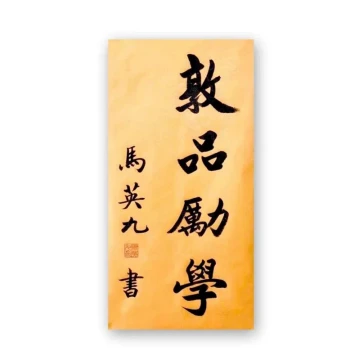 敦品勵學
馬英九
書